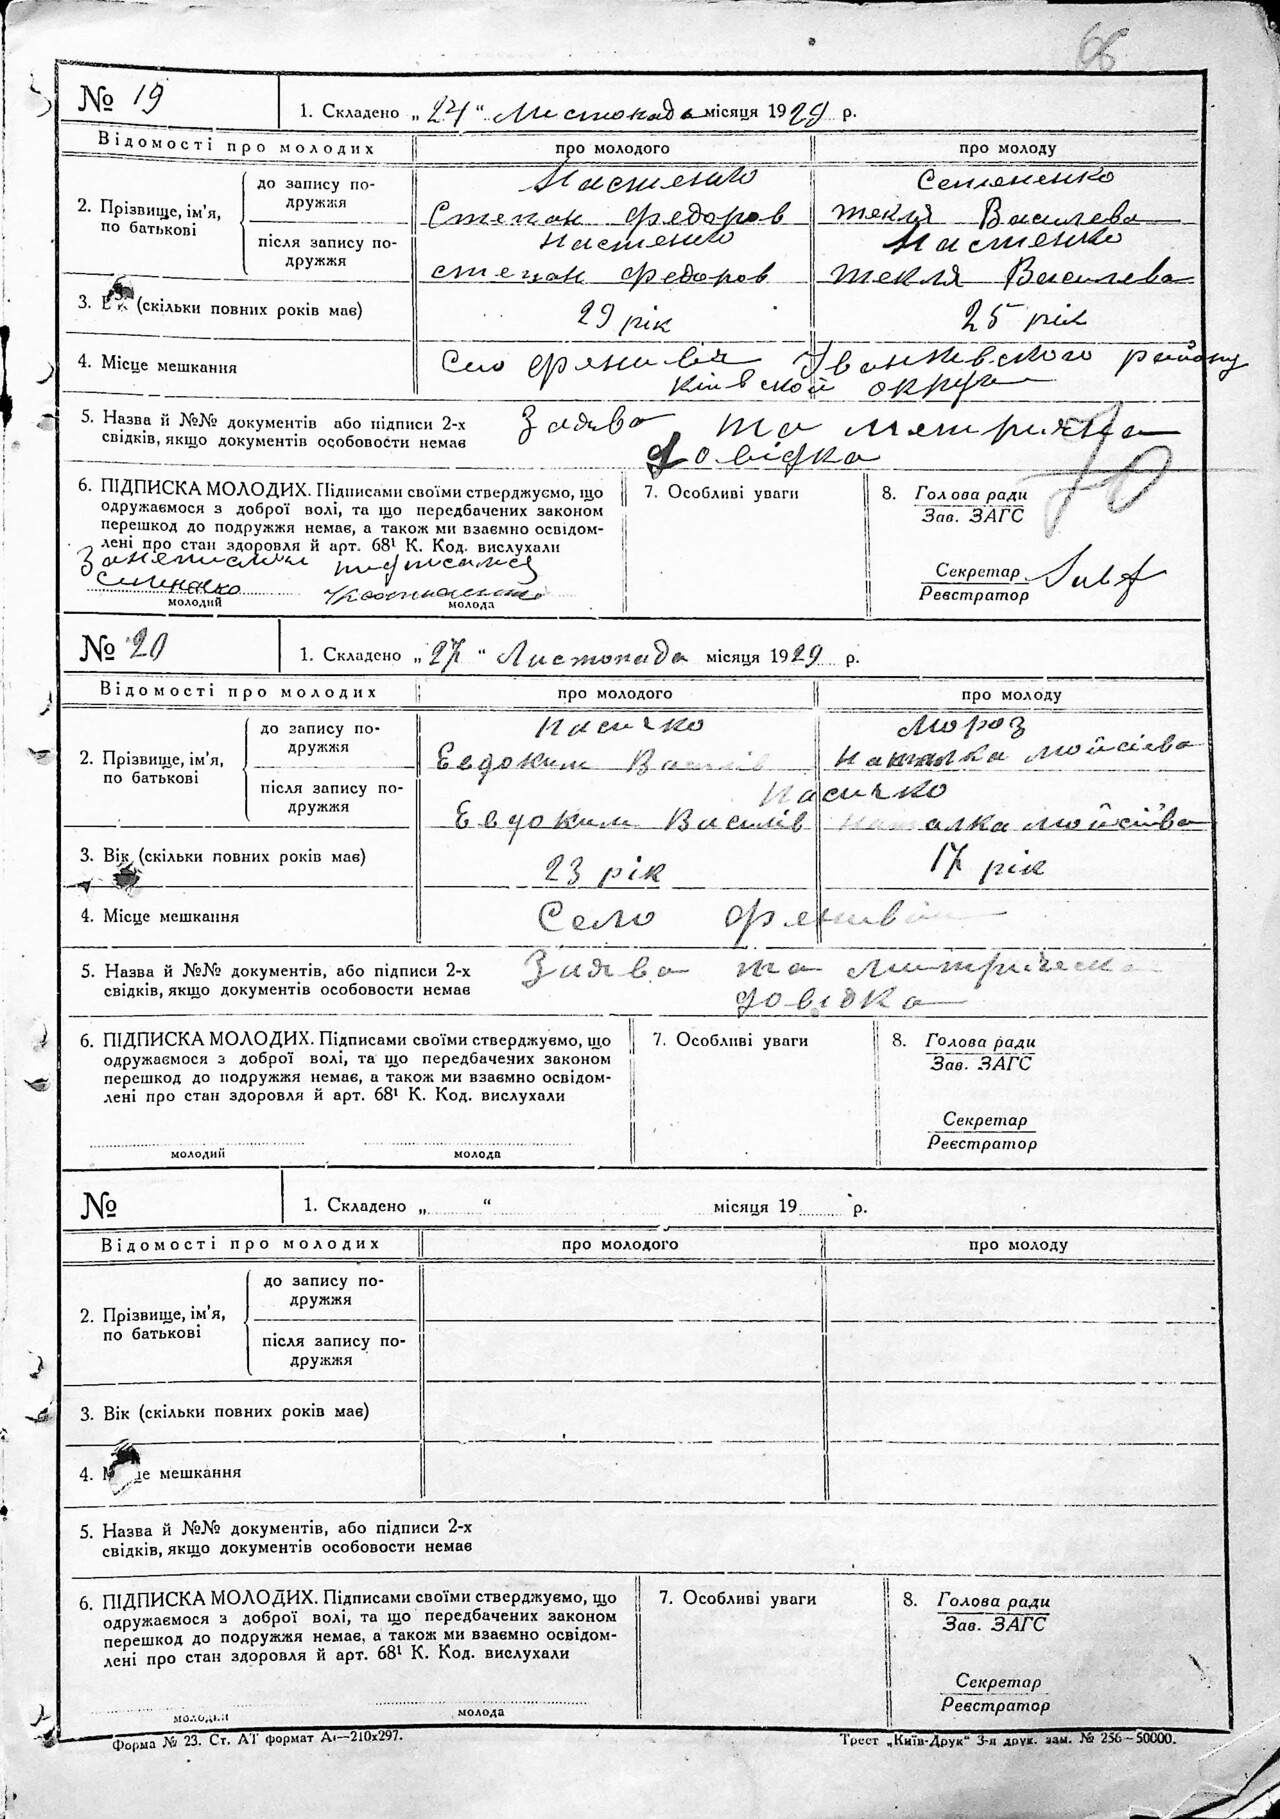 68
№ 19
1. Складено „24“ Листопада місяця 1929 р.
Відомості про молодих
про молодого
про молоду
2. Прізвище, ім'я, по батькові
до запису по-
дружжя
Настенко
Степан Федоров
Семененко
Текля Василева
після запису по-
дружжя
Настенко
степан Федоров
Настенко
Текля Василева
3. В (скільки повних років має)
29 рік
25 рік
4. Місце мешкання
Село Фенивія Іванківського району
Київской округи
5. Назва й №№ документів або підписи 2-х
свідків, якщо документів особовости немає
Заява та метрична
довідка
70
6. ПІДПИСКА МОЛОДИХ. Підписами своїми стверджуємо, що
одружаємося з доброї волі, та що передбачених законом
перешкод до подружжя немає, а також ми взаємно освідом-
лені про стан здоровля й арт. 68¹ К. Код. вислухали
молодий
молода
7. Особливі уваги
8. Голова ради
Зав. ЗАГС
Секретар
Реєстратор
№ 20
1. Складено „27“ Листопада місяця 1929 р.
Відомості про молодих
про молодого
про молоду
2. Прізвище, ім'я,
по батькові
до запису по-
дружжя
Пасичко
Евдоким Василів
Мороз
Наталка Мойсієва
після запису по-
дружжя
Пасичко
Евдоким Василів
Наталка Мойсієва
3. Вік (скільки повних років має)
23 рік
17 рік
4. Місце мешкання
Село Феневія
5. Назва й №№ документів, або підписи 2-х
свідків, якщо документів особовости немає
Заява та метрическа
довідка
6. ПІДПИСКА МОЛОДИХ. Підписами своїми стверджуємо, що
одружаємося з доброї волі, та що передбачених законом
перешкод до подружжя немає, а також ми взаємно освідом-
лені про стан здоровля й арт. 68¹ К. Код. вислухали
молодий
молода
7. Особливі уваги
8. Голова ради
Зав. ЗАГС
Секретар
Реєстратор
№
1. Складено „ “ місяця 19 р.
Відомості про молодих
про молодого
про молоду
2. Прізвище, ім'я,
по батькові
до запису по-
дружжя
після запису по-
дружжя
3. Вік (скільки повних років має)
4. М це мешкання
5. Назва й №№ документів, або підписи 2-х
свідків, якщо документів особовости немає
6. ПІДПИСКА МОЛОДИХ. Підписами своїми стверджуємо, що
одружаємося з доброї волі, та що передбачених законом
перешкод до подружжя немає, а також ми взаємно освідом-
лені про стан здоровля й арт. 68¹ К. Код. вислухали
молодий
молода
7. Особливі уваги
8. Голова ради
Зав. ЗАГС
Секретар
Реєстратор
Форма № 23. Ст. АТ формат А₄—210х297.
Трест „Київ-Друк“ 3-я друк. зам. № 256—50000.